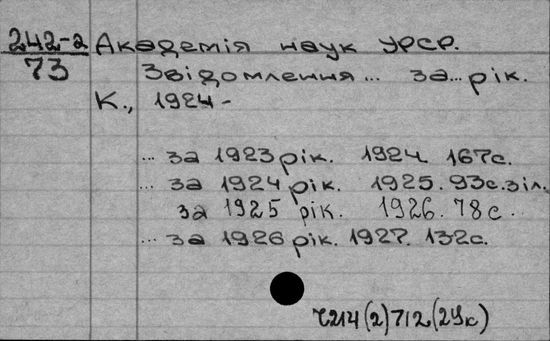 242-а Академія наук УРСР.
73 Звідомлення... за... рік.
К., 1924-
... за 1923 рік. 1924. 167с.
... за 1924 рік. 1925. 93с. з іл.
за 1925 рік. 1926. 78 с.
... за 1926 рік. 1927. 132с.
Ч214(2)712(2Ук)